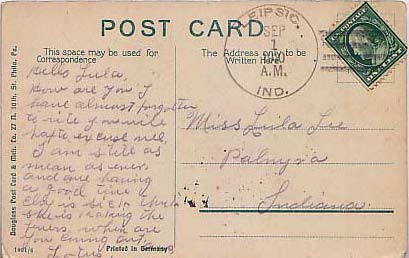 POST CARD
This space may be used for
Correspondence
The Address only to be
Written Here.
LEIPSIC.
SEP
1
A.M.
IND.
Hello Lula,
How are you I
have almost forgotten
to rite you
excuse me,
I am still as
mean as ever
and am having
a good time
is sick
she is the
when are
you coming out.
Miss Lula Lee
Palmyra
Indiana
Douglass Post Card & Mch. Co. 27 N. 10th. St. Phila. Pa.
1901/6
Printed in Germany